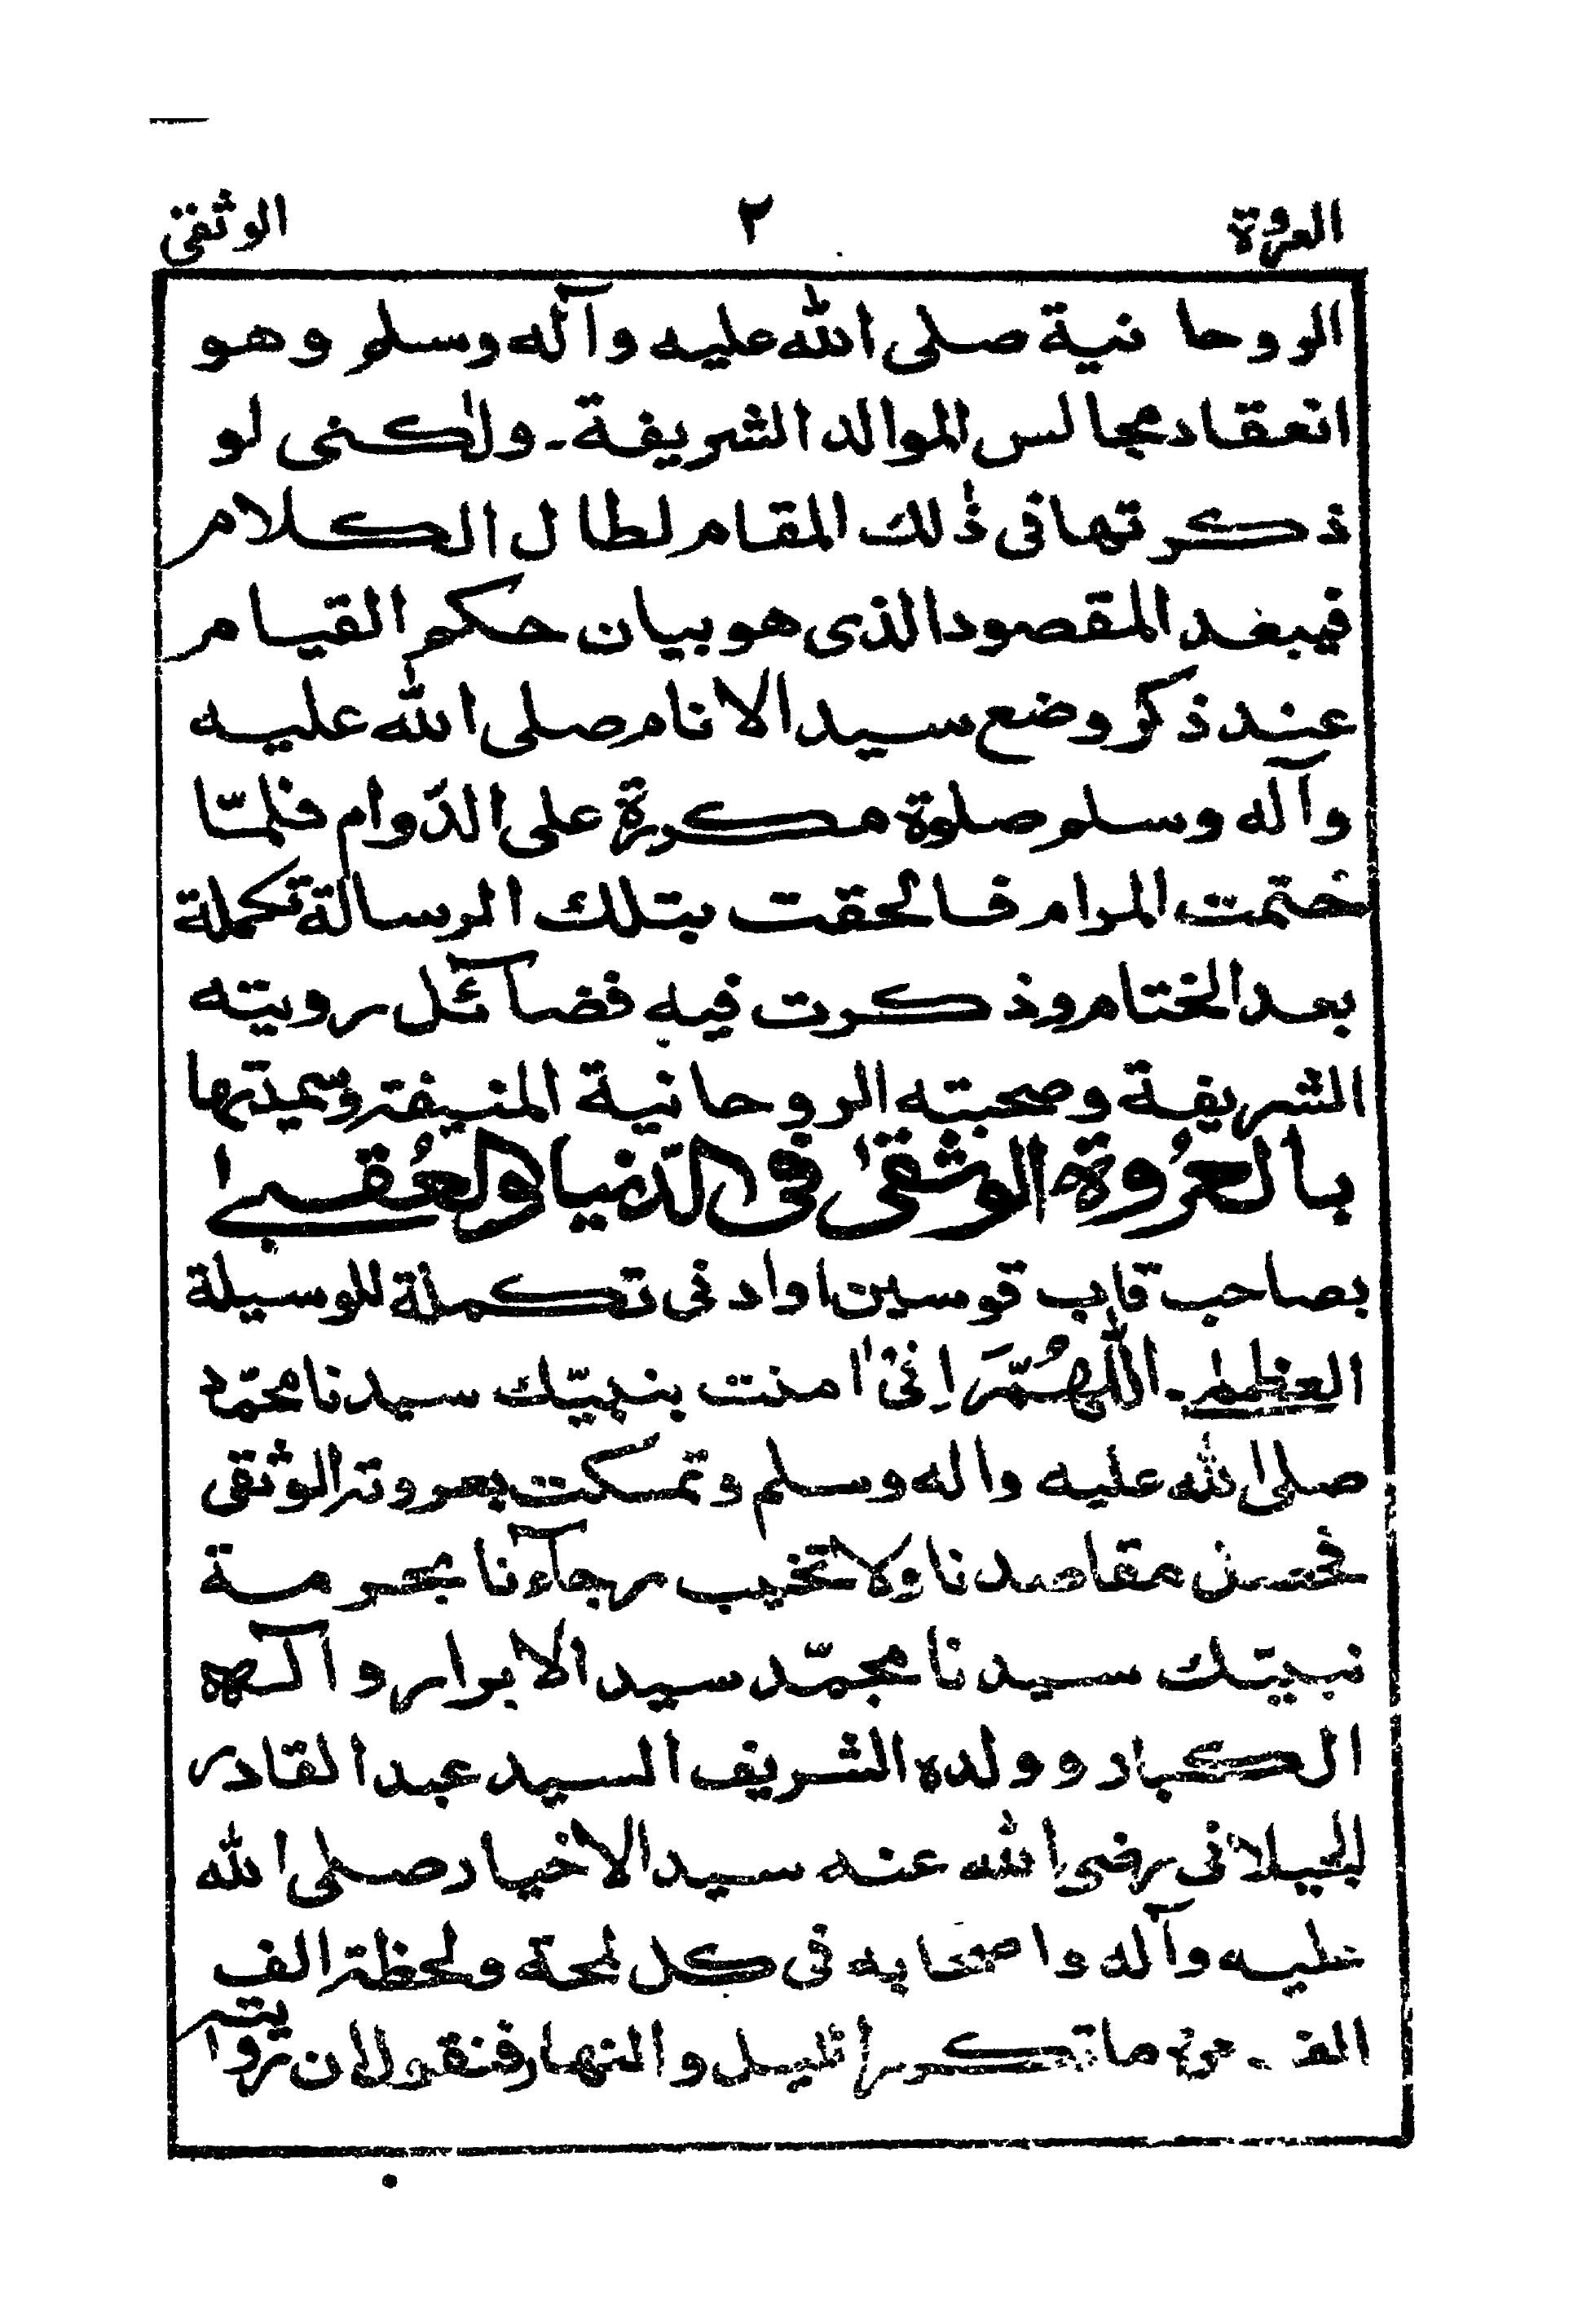 العروة ٢ الوثقى
الروحانية صلى الله عليه وآله وسلم وهو
انعقاد مجالس الموالد الشريفة۔ ولٰكنى لو
ذكرتها فى ذٰلك المقام لطال الكلام
فيبعد المقصود الذى هو بيان حكم القيام
عند ذكر وضع سيد الانام صلى الله عليه
وآله وسلم صلوة مكررة على الدّوام فلمّا
ختمت المرام فالحقت بتلك الرسالة تكملة
بعد الختام وذكرت فيه فضآئل رويته
الشريفة وصحبته الروحانية المنيفة وسميتها
بالعُروة الوثقىٰ فى الدّنيا والعُقبىٰ
بصاحب قاب قوسين او ادنى تكملة للوسيلة
العظمىٰ۔ اللّٰهُمَّ اِنىْ اٰمنت بنبيّك سيدنا محمّد
صلى الله عليه واله وسلم وتمسكت بعروته الوثقى
فحسن مقاصدنا ولا تخيب رجآءنا بحرمة
نبيّك سيدنا محمّد سيد الابرار وآله
الكبار وولده الشريف السيد عبد القادر
الجيلانى رضى الله عنه سيد الاخيار صلى الله
عليه وآله واصحابه فى كل لمحة ولحظة الف
الف مرة ما تكرر الليل والنهار فنقول ان رؤيته